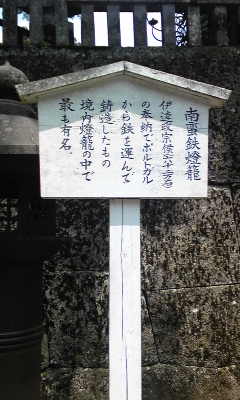 南蛮鉄燈籠
伊達政宗侯六十二万石
の奉納でポルトガル
から鉄を運んで
鋳造したもの
境内燈籠の中で
最も有名